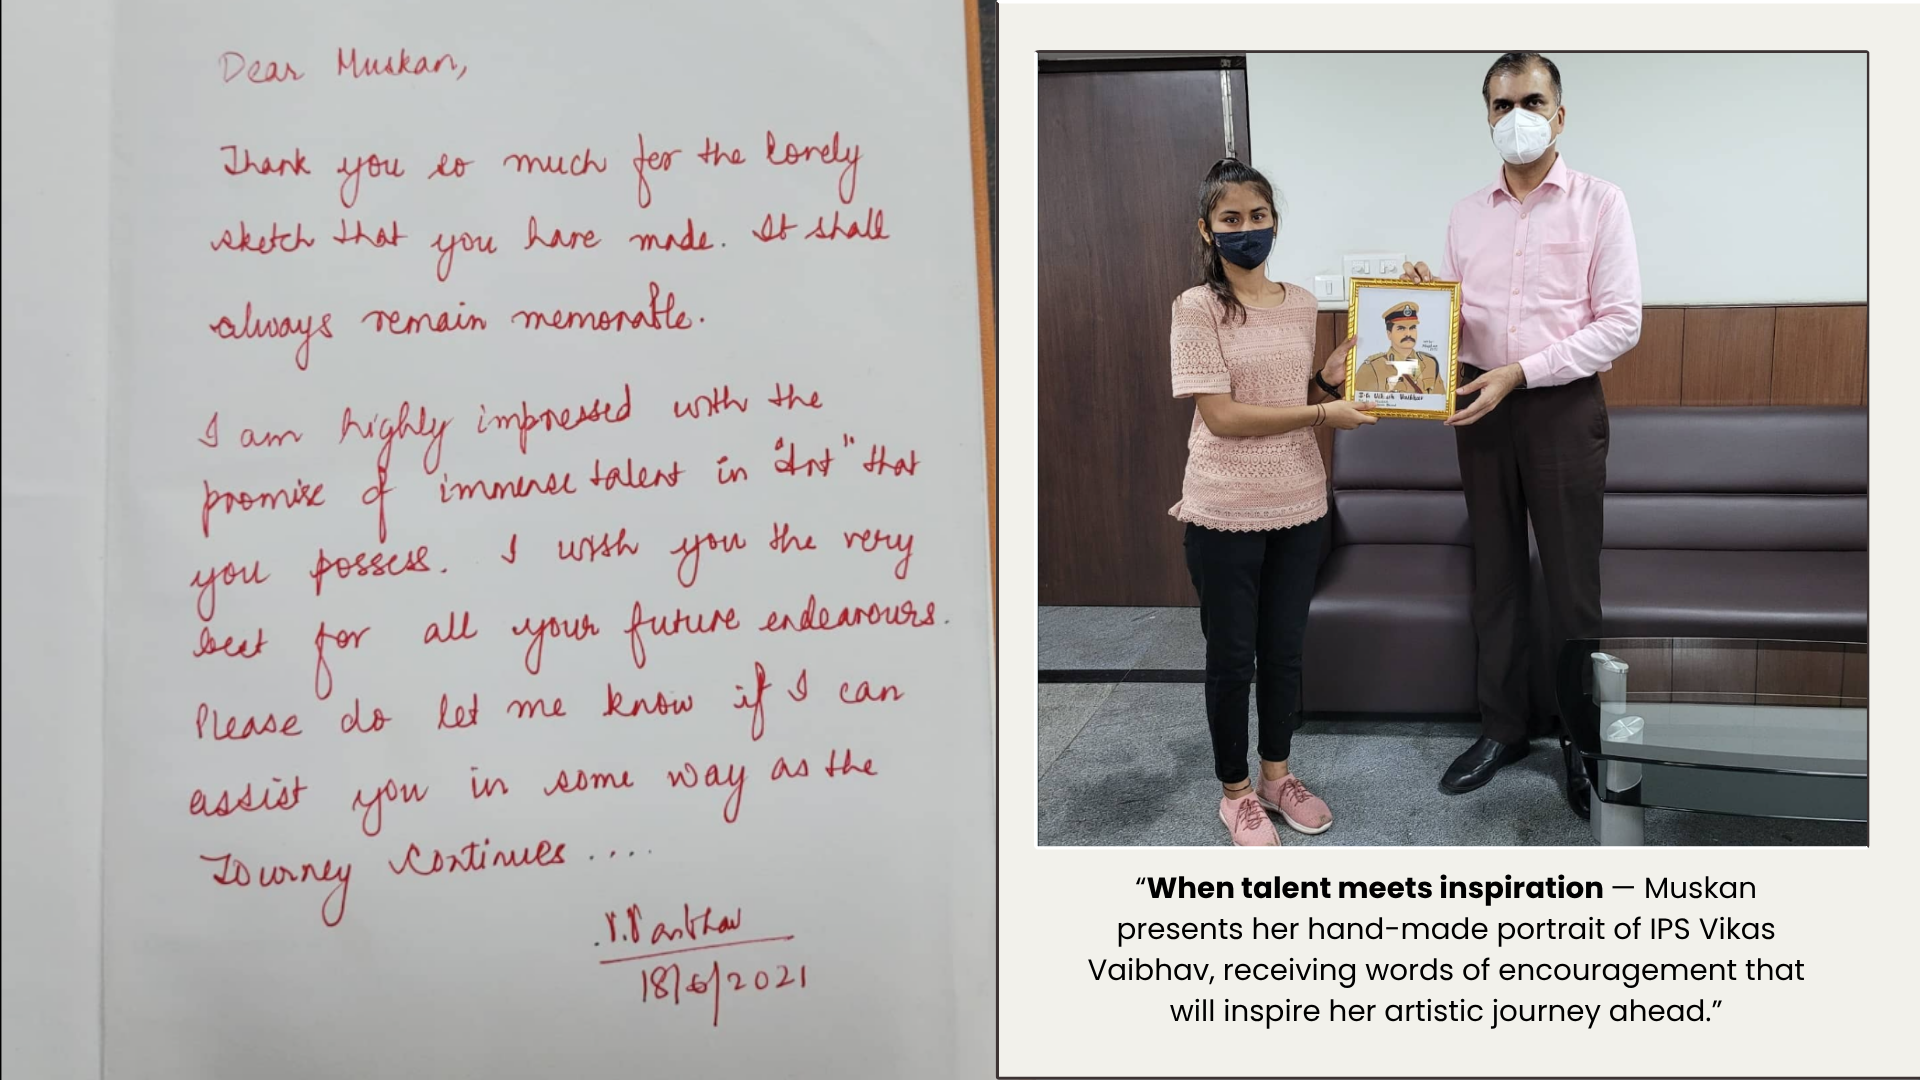 Dear Muskan,
Thank you so much for the lovely
sketch that you have made. It shall
always remain memorable.
I am highly impressed with the
promise of immense talent in "Art" that
you possess. I wish you the very
best for all your future endeavours.
Please do let me know if I can
assist you in some way as the
Journey Continues ....
V.Vaibhav
18/6/2021
I.G Vikash Vaibhav
“When talent meets inspiration — Muskan
presents her hand-made portrait of IPS Vikas
Vaibhav, receiving words of encouragement that
will inspire her artistic journey ahead.”